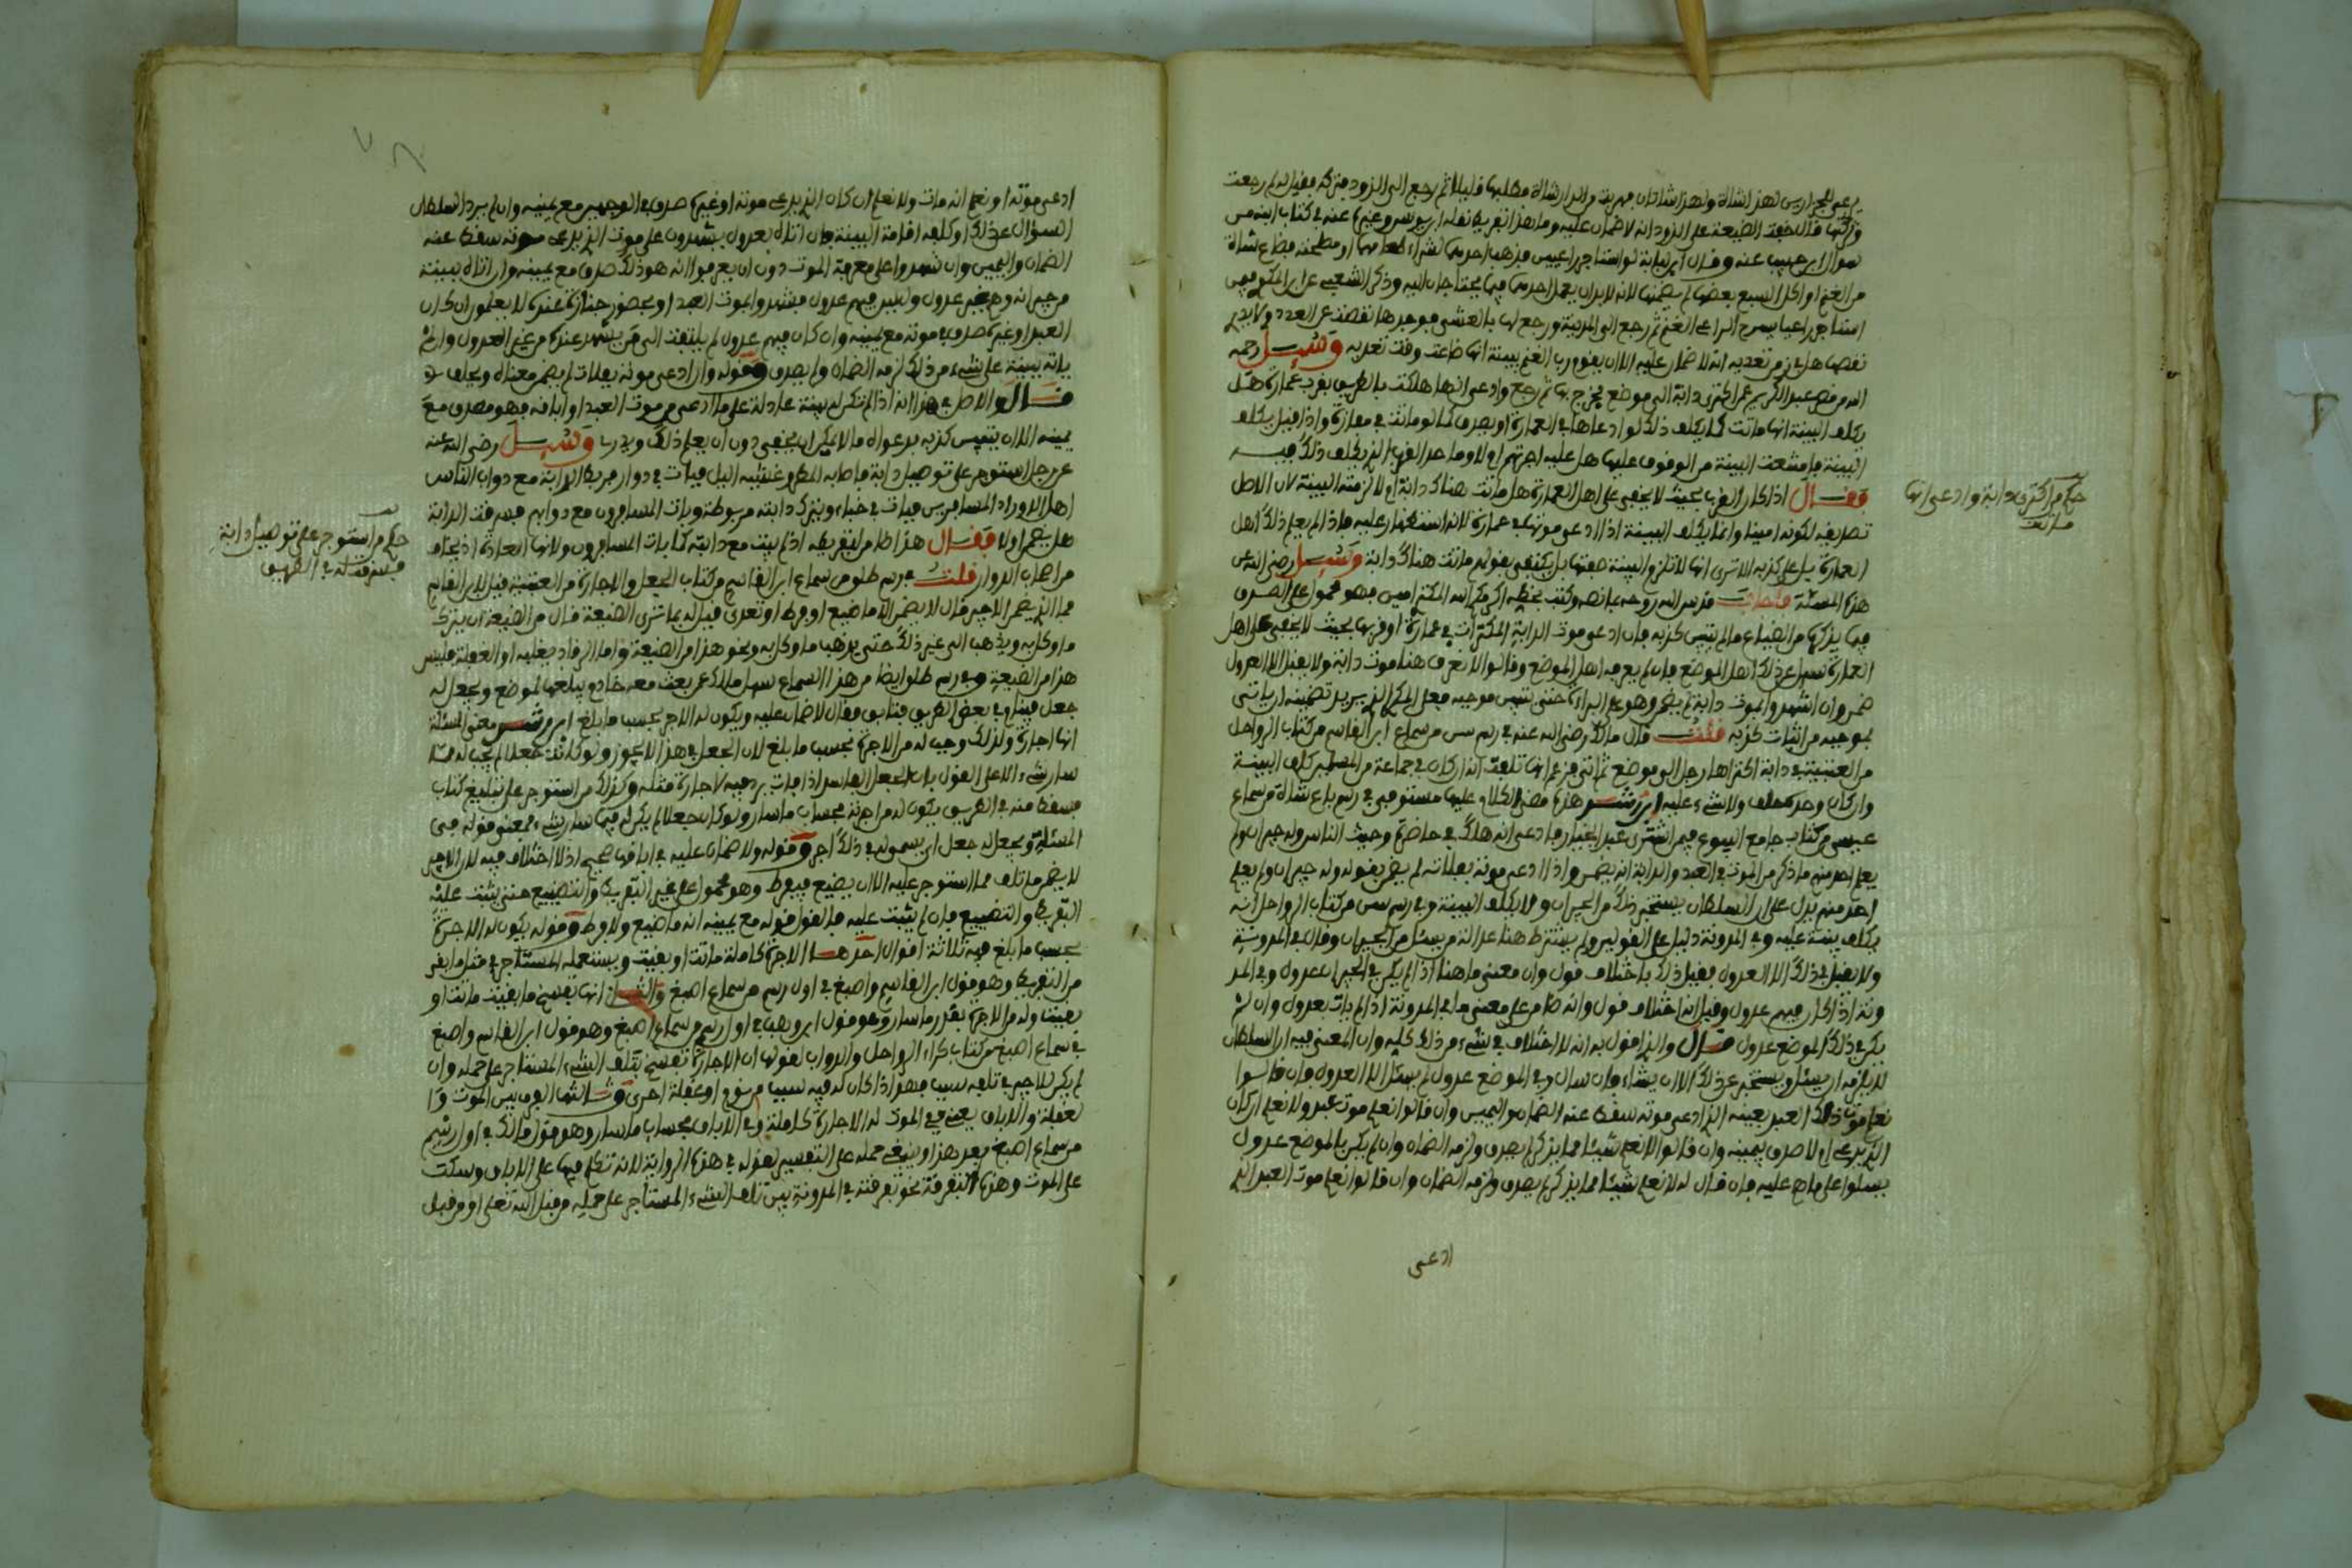 وتركتها قال خفت الضيعة على الزود انه لا ضمان عليه وما هذا تفريط نقله ابن يونس وغيره عنه في كتاب ابنه من
سوال ابن حبيب عنه وقال
من الغنم او اكل السبع بعضها لم يضمنها لانه لا بد ان يعمل احدهما فيما يحتاجان اليه وذكر الشعبي عن ابن المكوي فيمن
استاجر راعيا يسرح الراعي الغنم ثم رجع الى المدينة ورجع لها بالعشي فوجدها نقصت عن العدد ولا يدري
نقصها هل في زمن تعديه انه لا ضمان عليه الا ان يقوم رب الغنم ببينة انها ضاعت وقت تعديه وسئل رحمه
الله عمن اكترى دابة الى موضع فخرج بها ثم رجع وادعى انها هلكت بالطريق بقرب عمارة هل
يكلف البينة انها ماتت كما يكلف ذلك لو ادعاها في العمارة او يصدق كما لو ماتت في مفازة واذا قيل يكلف
البينة فامتنعت البينة من الوقوف عليها هل عليه اجرتهم ام لا وما حد القرب الذي يكلف ذلك فيه
فقال اذا كان القرب بحيث لا يخفى على اهل العمارة هل ماتت هناك دابة ام لا لزمته البينة لان الاصل
تصديقه لكونه امينا وانما يكلف البينة اذا ادعى موتها في عمارة لانه استظهار عليه فاذا لم يعلم ذلك اهل
العمارة دل على كذبه الا ترى انها لا تلزم البينة حقها بل يكتفى بقولهم ماتت هناك دابة وسئل رضي الله عن
هذه المسئلة فاجاب قدس الله روحه بما نصه وكتب بخطه اكرمكم الله المكتري امين فهو محمول على الصدق
فيما يذكر من الضياع ما لم يتبين كذبه فان ادعى موت الدابة المكتراة في عمارة او قربها بحيث لا يخفى على اهل
العمارة سئل عن ذلك اهل الموضع فان لم يعرفه اهل الموضع وقالوا لا نعرف هنا موت دابة ولا يقبل الا العدول
ضمن وان شهدوا بموت دابة لم يضمن وهو على البراءة حتى يتبين موجبه فعلى المكري الذي يريد تضمينه ان ياتي
بموجبه من اثبات كذبه قلت قال مالك رضي الله عنه في رسم سن من سماع ابن القاسم من كتاب الرواحل
من العتبية في دابة اكتراها رجل الى موضع ثم اتى فزعم انها تلفت انه ان كان في جماعة من المسلمين كلف البينة
وان كان وحده حلف ولا شيء عليه ابن رشد هذه مضى الكلام عليها مستوفى في رسم باع شاة من سماع
عيسى من كتاب جامع البيوع فيمن اشترى عبدا بخيار فادعى انه هلك في حاضرة وحيث الناس وله جيران ولم
يعلم احد منهم ما ذكر من الموت في العبد والدابة انه يضمن واذا ادعى موته بفلاة لم يضمن بقوله وله جيران ولم يعلم
احد منهم يدل على ان السلطان يستخبر ذلك من الجيران ولا يكلف البينة وفي رسم سن من كتاب الرواحل انه
يكلف بينة عليه وفي المدونة دليل على القولين ولم يشترط هنا عدالة من يسئل من الجيران وقال في المدونة
ولا يقبل في ذلك الا العدول فقيل ذلك باختلاف قول وان معنى ما هنا اذا لم يكن في الجيران عدول وفي المد
ونة اذا كان فيهم عدول وقيل انه اختلاف قول وانه ضامن على معنى ما في المدونة اذا لم يات بعدول وان لم
يكن في ذلك الموضع عدول قال والذي اقول به انه لا اختلاف في شيء من ذلك كله وان المعنى فيه ان السلطان
لا يلزمه ان يسئل ويستخبر عن ذلك الا ان يشاء فان سال وفي الموضع عدول لم يسئل الا العدول فان قالوا
نعلم موت ذلك العبد بعينه الذي ادعى موته سقط عنه الضمان واليمين وان قالوا نعلم موت عبد ولا نعلم ان كان
الذي يدعي ام لا صدق بيمينه وان قالوا لا نعلم شيئا مما يذكر لم يصدق ولزمه الضمان وان لم يكن بالموضع عدول
يسئلوا على ما هم عليه فان قال له لا نعلم شيئا مما يذكر لم يصدق ولزمه الضمان وان قالوا نعلم موت العبد الذي
ادعى
حكم من اكترى دابة وادعى انها
ماتت
ادعى موته او نعلم انه مات ولا نعلم ان كان الذي يدعي موته او غيره صدق في الوجهين مع يمينه وان لم يرد السلطان
السؤال عن ذلك او كلفه اقامة البينة فان اتاه بعدول يشهدون على موت الذي يدعي موته سقط عنه
الضمان واليمين وان شهدوا على معرفة الموت دون ان يعرفوا انه هو ذلك صدق مع يمينه وان اتاه ببينة
من جيرانه وهم غير عدول وليس فيهم عدول فشهدوا بموت العبد او بحضور جنازة عنده لا يعلمون ان كان
العبد او غيره صدق في موته مع يمينه وان كان فيهم عدول لم يلتفت الى من يشهد عنده من غير العدول وان لم
يات ببينة على شيء من ذلك لزمه الضمان ولم يصدق وقوله وان ادعى موته بفلاة لم يضمن معناه ويحلف
قال والاصل في هذا انه اذا لم تكن له بينة عادلة على ما ادعى من موت العبد او اباقه فهو مصدق مع
يمينه الا ان يتبين كذبه بدعواه ما لا يمكن ان يخفى دون ان يعلم ذلك ويدرى وسئل رضي الله عنه
عن رجل استوجر على توصيل دابة فاصابه المطر وغلبه الليل فبات في دوار فربط الدابة مع دواب الناس
اهل الدوار المسافرين فبات في خباء وترك دابته مربوطة وبات المسافرون مع دوابهم فسرقت الدابة
هل يضمن ام لا فقال هذا ضامن لتفريطه اذ لم يبت مع دابته كما بات المسافرون ولانها العادة
من اهل الدوار قلت في رسم طلق من سماع ابن القاسم من كتاب الجعل والاجارة من العتبية قيل لابن القاسم
فما الذي يضمن الاجير قال لا يضمن الا ما ضيع او فرط او تعدى قيل له بما ترى الضيعة قال من الضيعة ان يترك
ما وكل به ويذهب الى غير ذلك حتى يذهب ما وكل به ونحو هذا من الضيعة واما الرقاد يغلبه او الغفلة فليس
هذا من الضيعة وفي رسم طلق ايضا من هذا السماع سئل مالك عمن بعث معه خادم يبلغها لموضع ويجعل له
جعل فينام في بعض الطريق فتابق فقال لا ضمان عليه ويكون له الاجر بحسب ما بلغ ابن رشد معنى المسئلة
انها اجارة ولذلك وجب له من الاجرة بحسب ما بلغ لان الجعل في هذا لا يجوز ولو كانت جعلا لم يجب له فيما
سار شيء الا على القول بان الجعل الفاسد اذا فات يرد فيه لاجارة مثله وكذلك من استوجر على تبليغ كتاب
فسقط منه في الطريق يكون له من اجرته بحساب ما سار ولو كان جعلا لم يكن له فيما سار شيء فمعنى قوله في
المسئلة ويجعل له جعل اي يسمون له في ذلك اجر وقوله ولا ضمان عليه في اباقها صحيح اذ لا اختلاف فيه لان الاجير
لا يضمن ما تلف مما استوجر عليه الا ان يضيع فيفرط وهو محمول على غير التفريط والتضييع حتى يثبت عليه
التفريط والتضييع فان لم يثبت عليه فالقول قوله مع يمينه انه ما ضيع ولا فرط وقوله يكون له الاجرة
بحسب ما بلغ فيه ثلاثة اقوال احدها الاجرة كاملة ماتت او بقيت ويستعمله المستاجر في مثل ما بقي
من التفريط وهو قول ابن القاسم واصبغ في اول رسم من سماع اصبغ والثاني انها يفسخ ما بقيت ماتت او
بقيت وله من الاجرة بقدر ما سار وهو قول ابن وهب في اول رسم من سماع اصبغ وهو قول ابن القاسم واصبغ
في سماع اصبغ من كتاب كراء الرواحل والدواب لقولها ان الاجارة تنفسخ بتلف الشيء المستاجر على حمله وان
لم يكن للاجير في تلفه سبب فهذا اذا كان له فيه سبب من نوم او غفلة احرى وثالثها الفرق بين الموت وا
لغفلة والاباق يعني في الموت له الاجارة كاملة وفي الاباق بحساب ما سار وهو قول مالك في اول رسم
من سماع اصبغ بعد هذا وينبغي حمله على التفسير لقوله في هذه الرواية لانه تكلم فيها على الاباق وسكت
على الموت وهذه التفرقة نحو تفرقته في المدونة بين تلف الشيء المستاجر على حمله من قبل الله تعلى او من قبل
حكم من استوجر على توصيل دابة
فسرقت له في الطريق